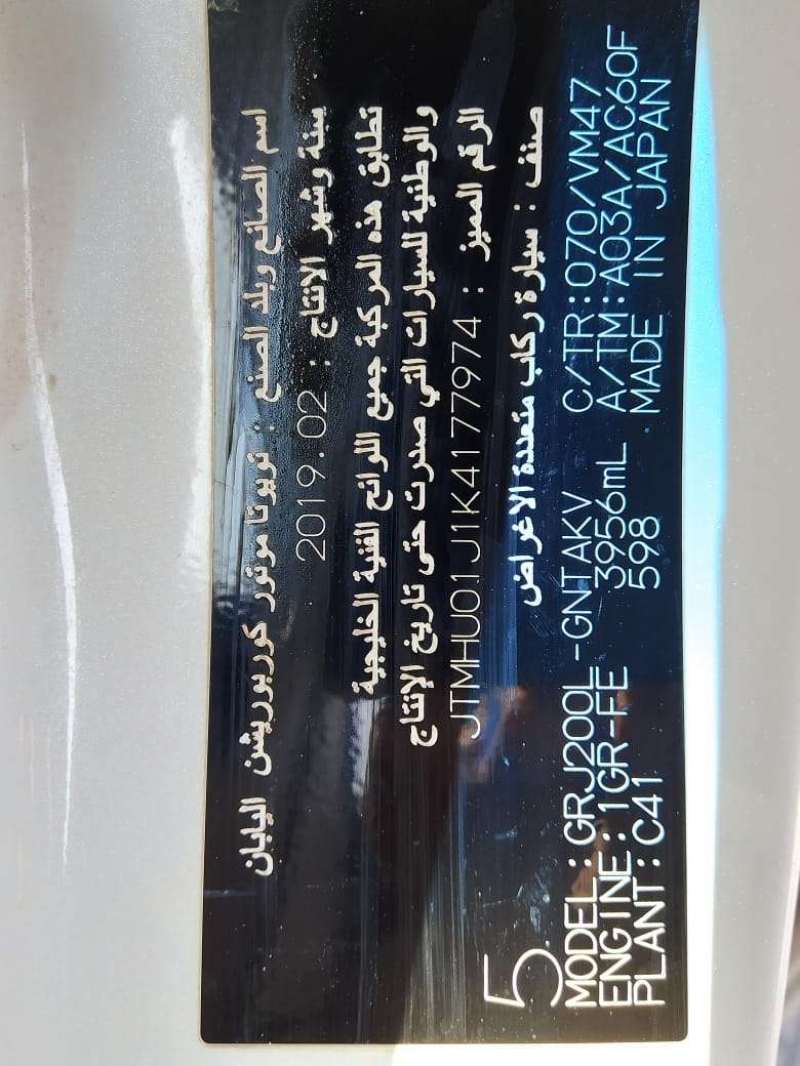 اسم الصانع وبلد الصنع : تويوتا موتور كوربوريشن اليابان
سنة وشهر الانتاج : 2019.02
تطابق هذه المركبة جميع اللوائح الفنية الخليجية
والوطنية للسيارات التي صدرت حتى تاريخ الإنتاج
الرقم المميز : JTMHU01J1K4177974
صنف : سيارة ركاب متعددة الاغراض
5
MODEL:GRJ200L-GNTAKV C/TR:070/VM47
ENGINE:1GR-FE 3956mL A/TM:A03A/AC60F
PLANT:C41 598 MADE IN JAPAN